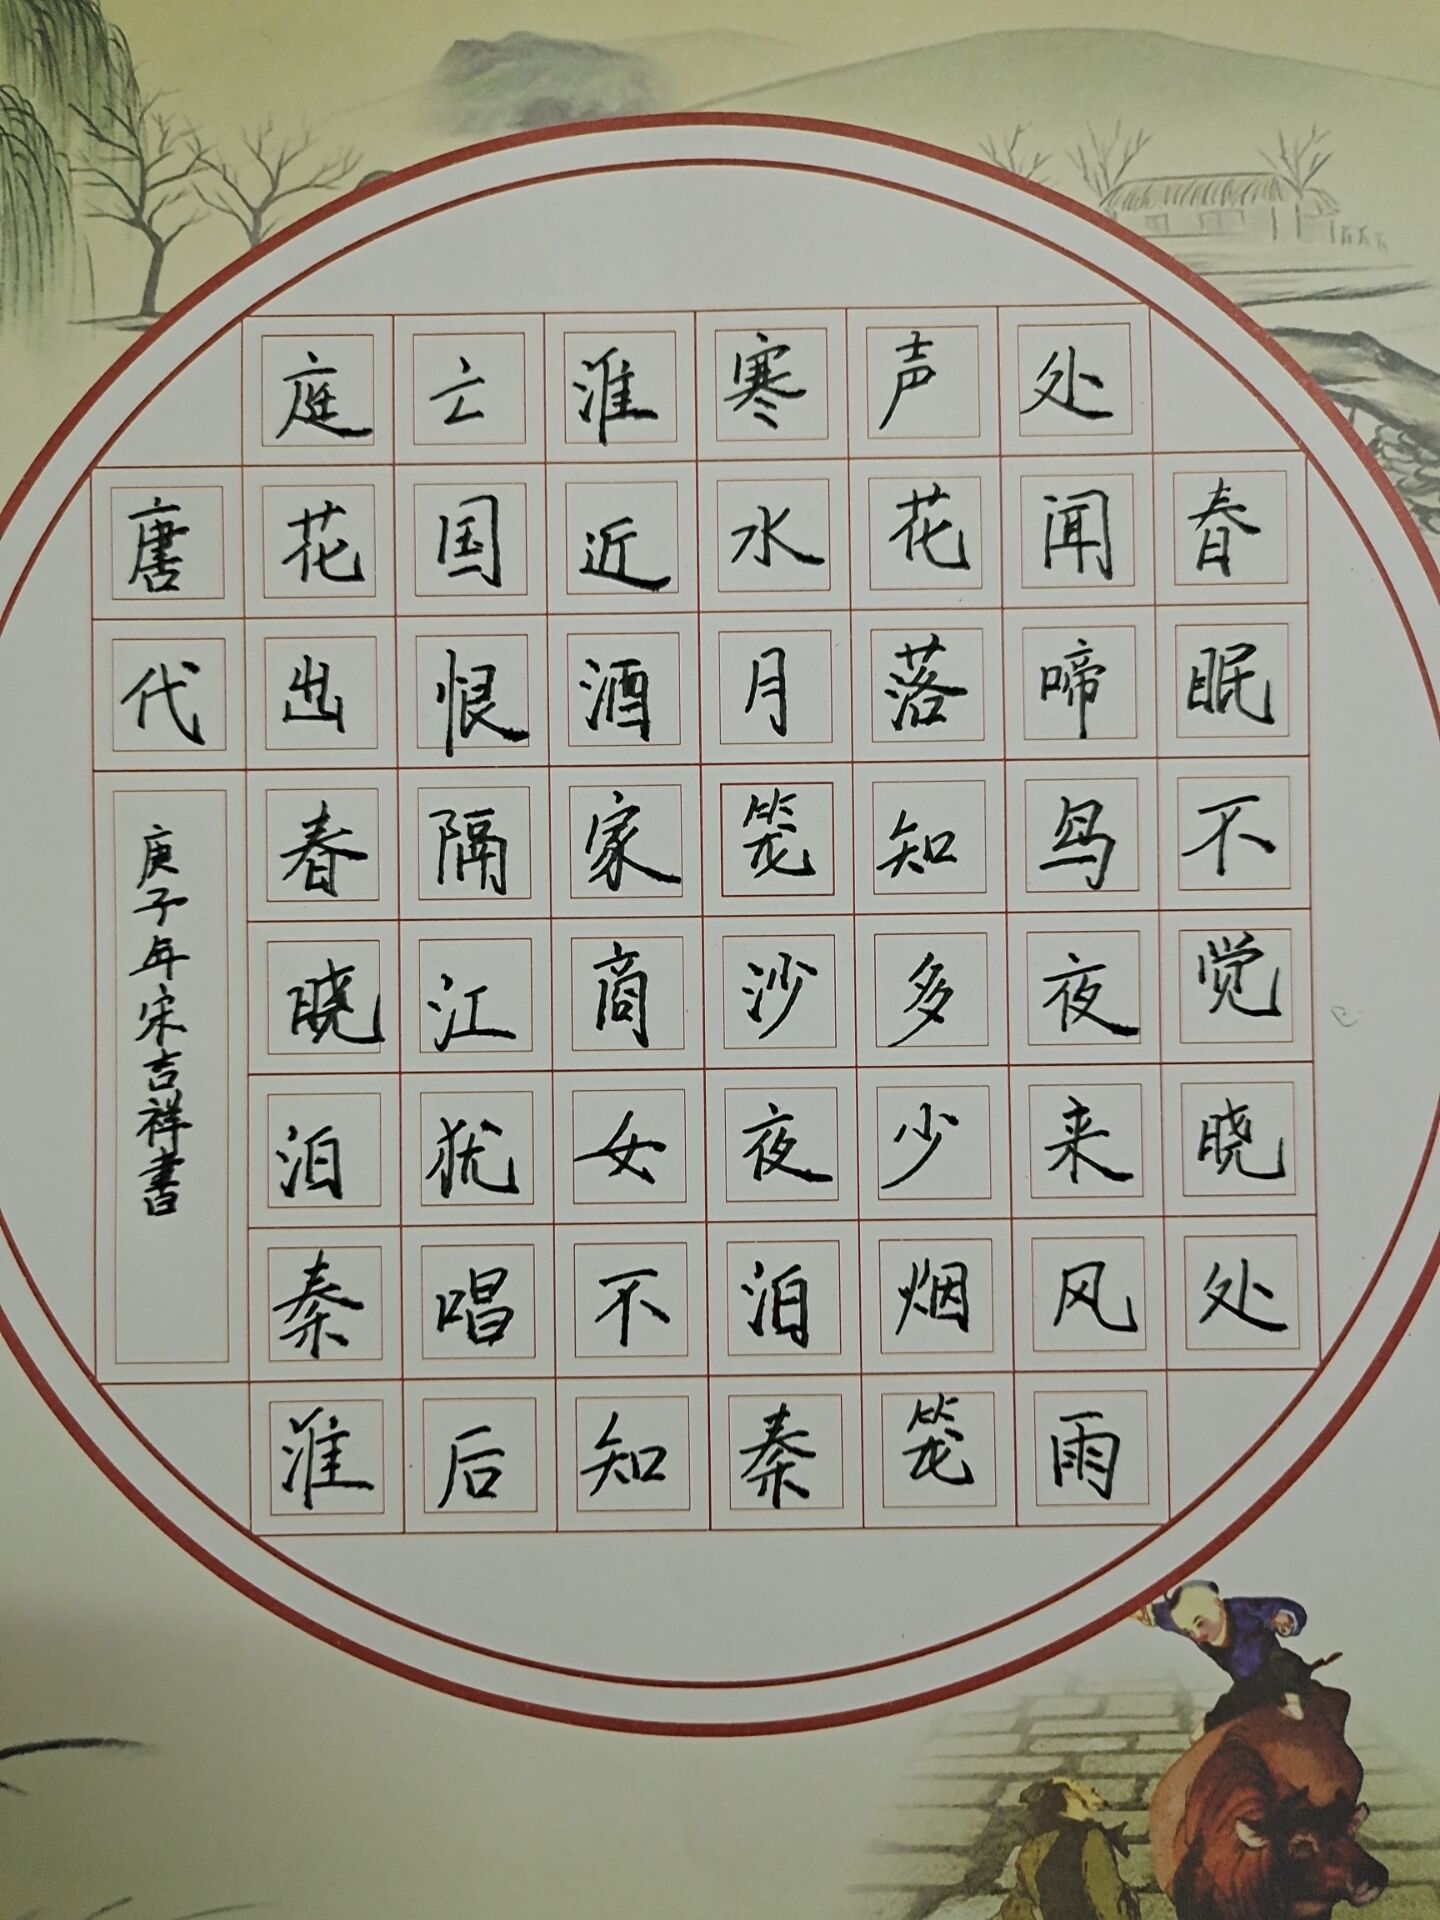 春眠不觉晓处
处闻啼鸟夜来风雨
声花落知多少烟笼
寒水月笼沙夜泊秦
淮近酒家商女不知
亡国恨隔江犹唱后
庭花出春晓泊秦淮
唐代
庚子年宋吉祥书